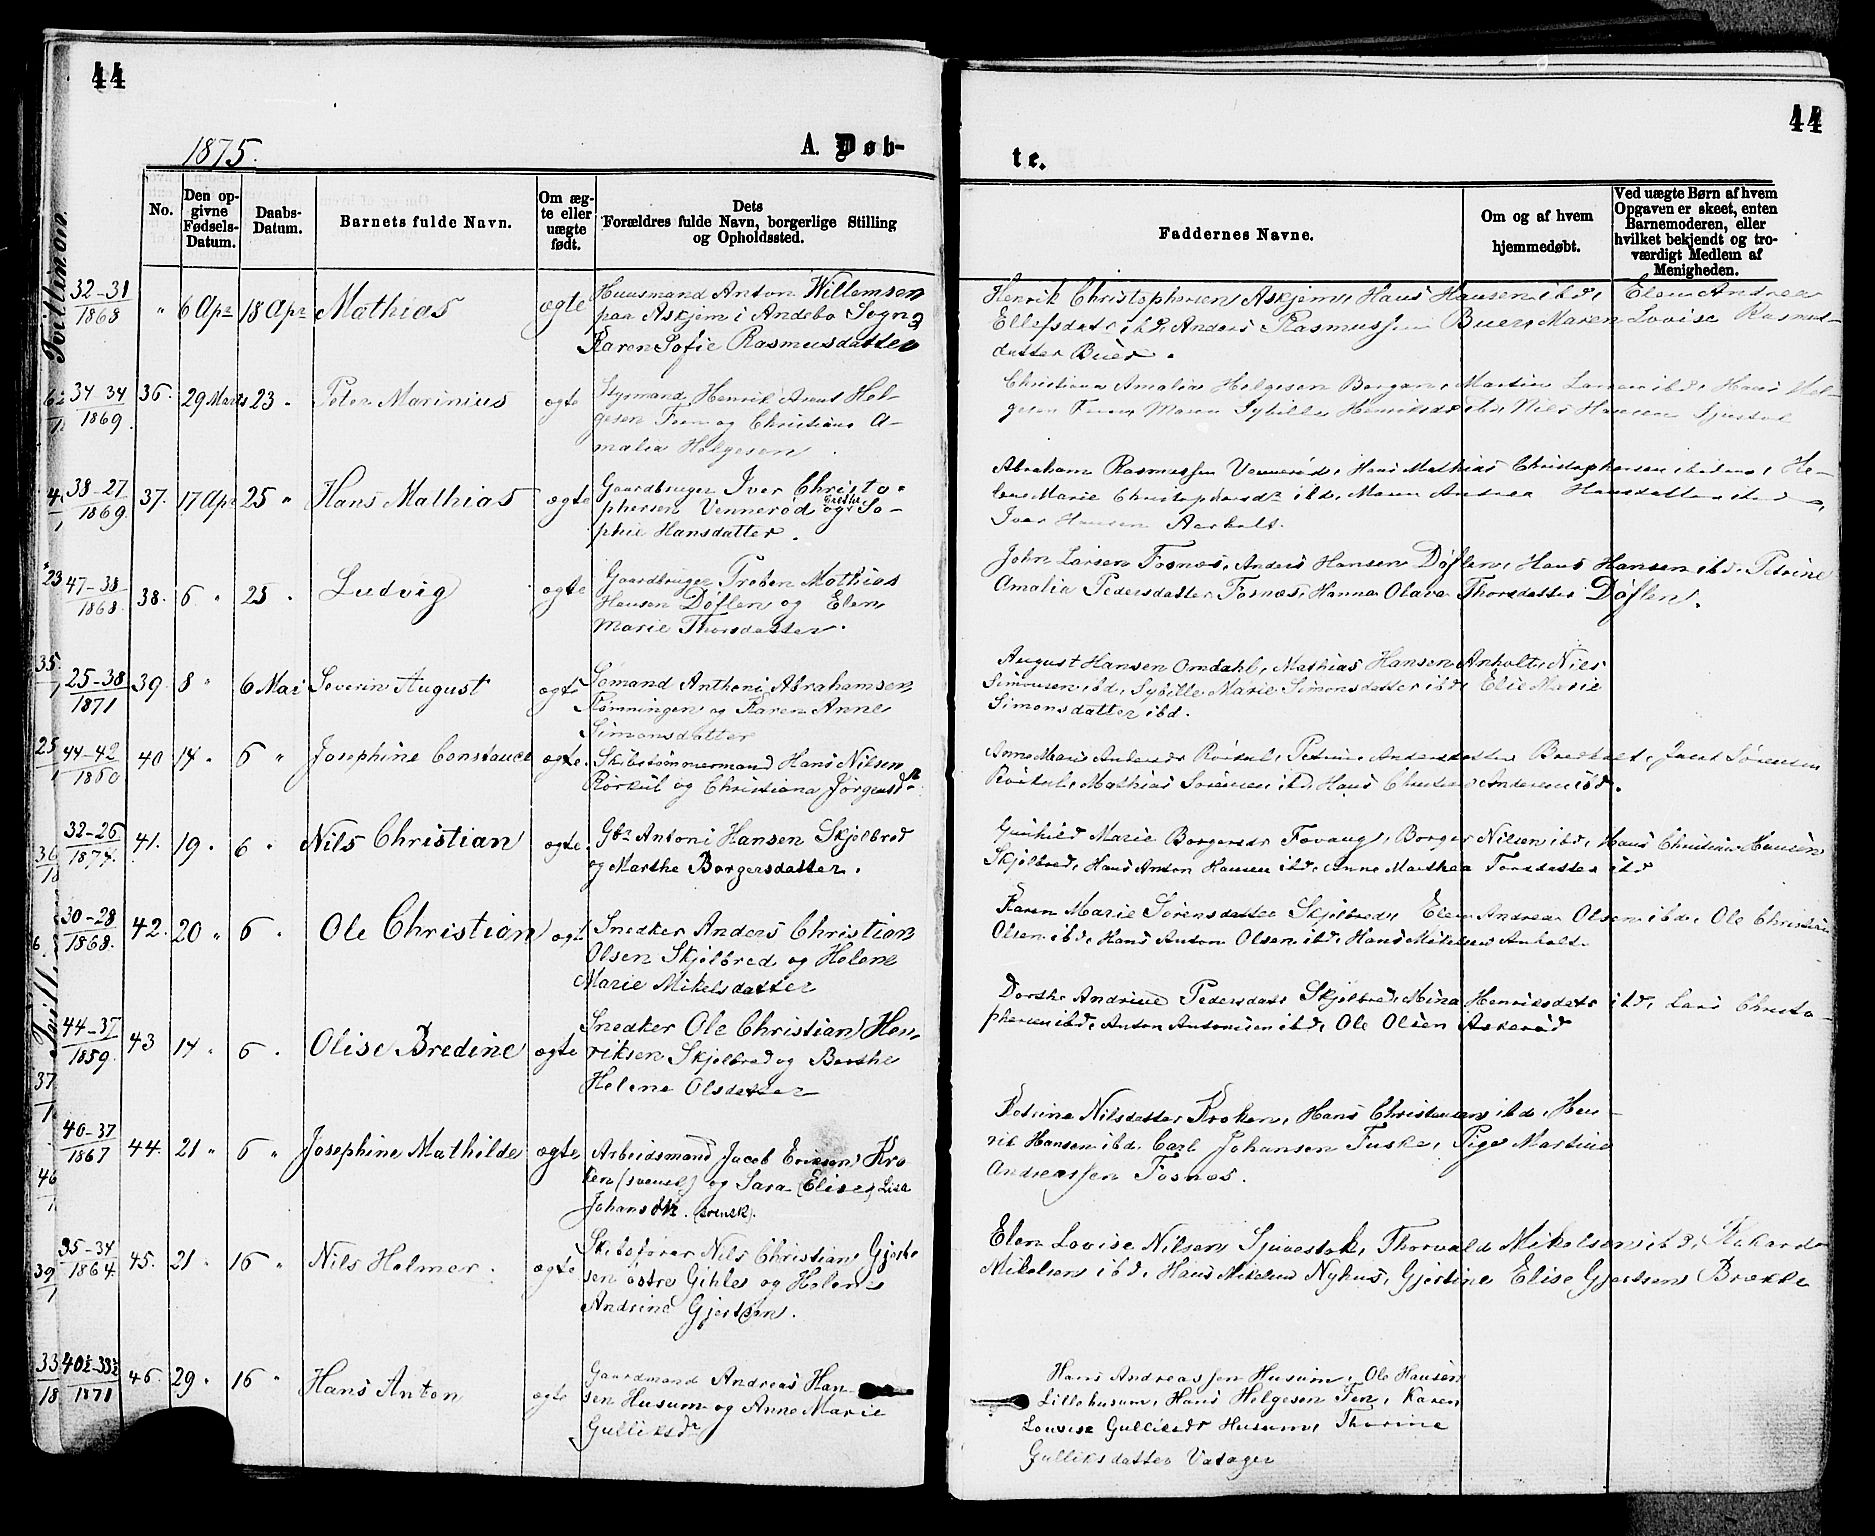 44
44
1875.
A. Døb-
te.
No.
Den op-
givne
Fødsels-
Datum.
Daabs-
Datum.
Barnets fulde Navn.
Om æg-
te eller
uægte
født.
Dets
Forældres fulde Navn, borgerlige Stilling
og Opholdssted.
Faddernes Navne.
Om og af hvem
hjemmedøbt.
Ved uægte Børn af hvem
Opgaven er skeet, enten
Barnemoderen, eller
hvilket bekjendt og tro-
værdigt Medlem af
Menigheden.
32-31
1868
" 6 Apr 18 Apr Mathias ægte
Huusmand Anton Willemsen
paa Askjem i Andebo Sogn og
Karen Sofie Rasmusdatter
Henrik Christophersen Askjem, Hans Hansen ibd, Elen Andrea
Ellefsdatr ibd, Anders Rasmussen Buer, Maren Lovise Rasmus-
datter Buer.
34-34
1869
36. 29 Marts 23 " Peter Marinius ægte
Styrmand Henrik Anus Hel-
gesen Fen og Christiane A-
malia Helgesen
Christiane Amalia Helgesen Borgan, Martin Larsen ibd, Hans Hel-
gesen Fen, Maren Sybille Henriksdatr Nils Hansen
38-27
1869
37. 17 Apr 25 " Hans Mathias ægte
Gaardbruger Iver Christo-
phersen Vennerød og Grethe So-
phie Hansdatter.
Abraham Rasmussen Vennerød, Hans Mathias Christophersen ibidem, He-
lene Marie Christophersdr ibd, Maren Andrea Hansdatter ibd,
Iver Hansen Aarholt.
47-38
1868
38. 6 " 25 " Ludvig ægte
Gaardbruger Preben Mathias
Hansen Døflen og Elen
Marie Thorsdatter.
John Larsen Fosnæs, Anders Hansen Døflen, Hans Hansen ibd, Petrine
Amalia Pedersdatter Fosnæs, Hanna Olava Thorsdatter Døflen.
25-38
1871
39. 8 " 6 Mai Severin August ægte
Sømand Anthoni Abrahamsen
Rømningen og Karen Anne
Simonsdatter
August Hansen Omdahl, Mathias Hansen Anholt, Niels
Simonsen ibd, Sybille Marie Simonsdatter ibd, Elie Marie
Simonsdatter ibd.
44-42
1850
40 14 " 6 " Josephine Constance ægte.
Skibstømmermand Hans Nilsen
Rørkul og Christiana Jørgensdr
Anne Marie Andersdr Rørkul, Petrine Andersdatter Bredholt, Jacob Sørensen
Rørkul, Mathias Sørensen ibd, Hans Christian Andersen ibd.
32-26
1874.
41. 19 " 6 " Nils Christian ægte.
Gbr Antoni Hansen Skjelbred
og Marthe Borgersdatter.
Gunhild Marie Borgersdr Fovaug, Borger Nilsen ibd, Hans Christian Hansen
Skjelbred, Hans Anton Hansen ibd, Anne Marthea Torsdatter ibd
30-28
1868.
42. 20 " 6 " Ole Christian ægte
Snedker Anders Christian
Olsen Skjelbred og Helene
Marie Mikelsdatter
Karen Marie Sørensdatter Skjelbred, Elen Andrea Olsen ibd, Ole Christian
Olsen ibd, Hans Anton Olsen ibd, Hans Mikelsen Anholt.
44-37
1859.
43 14 " 6 " Olise Bredine ægte
Snedker Ole Christian Hen-
riksen Skjelbred og Berthe
Helene Olsdatter
Dorthe Andrine Pedersdatr Skjelbred, Mina Henriksdatr ibd, Lars Christo-
phersen ibd, Anton Antonisen ibd, Ole Olsen Askerød
40-37
1867
44. 21 " 6 " Josephine Mathilde ægte
Arbeidsmand Jacob Eriksen Kro
ken (svensk) og Sara (Elise) Lisa
Johansdtr. (svensk).
Petrine Nilsdatter Kroken, Hans Christiansen ibd, Hen-
rik Hansen ibd, Carl Johansen Fuske, Pige Martine
Andreassen Fosnæs.
35-34
1864
45. 21 " 16 " Nils Helmer. ægte
Skibsfører Nils Christian Gjert-
sen østre Gihle og Helene
Andrine Gjertsen.
Elen Lovise Nilsen Sjuestok, Thorvald Mikelsen ibd, Rikard
Mikelsen ibd, Hans Mikelsen Nyhus, Gjertine Elise Gjertsen Brekke
40½-33½
1871
46. 29 " 16 " Hans Anton ægte
Gaardmand Andreas Han-
sen Husum og Anne Marie
Gulliksdr
Hans Andreassen Husum, Ole Hansen
Lillehusum, Hans Helgesen Fen, Karen
Lovise Gulliksdr Husum, Thorine
Gulliksdatter Valager